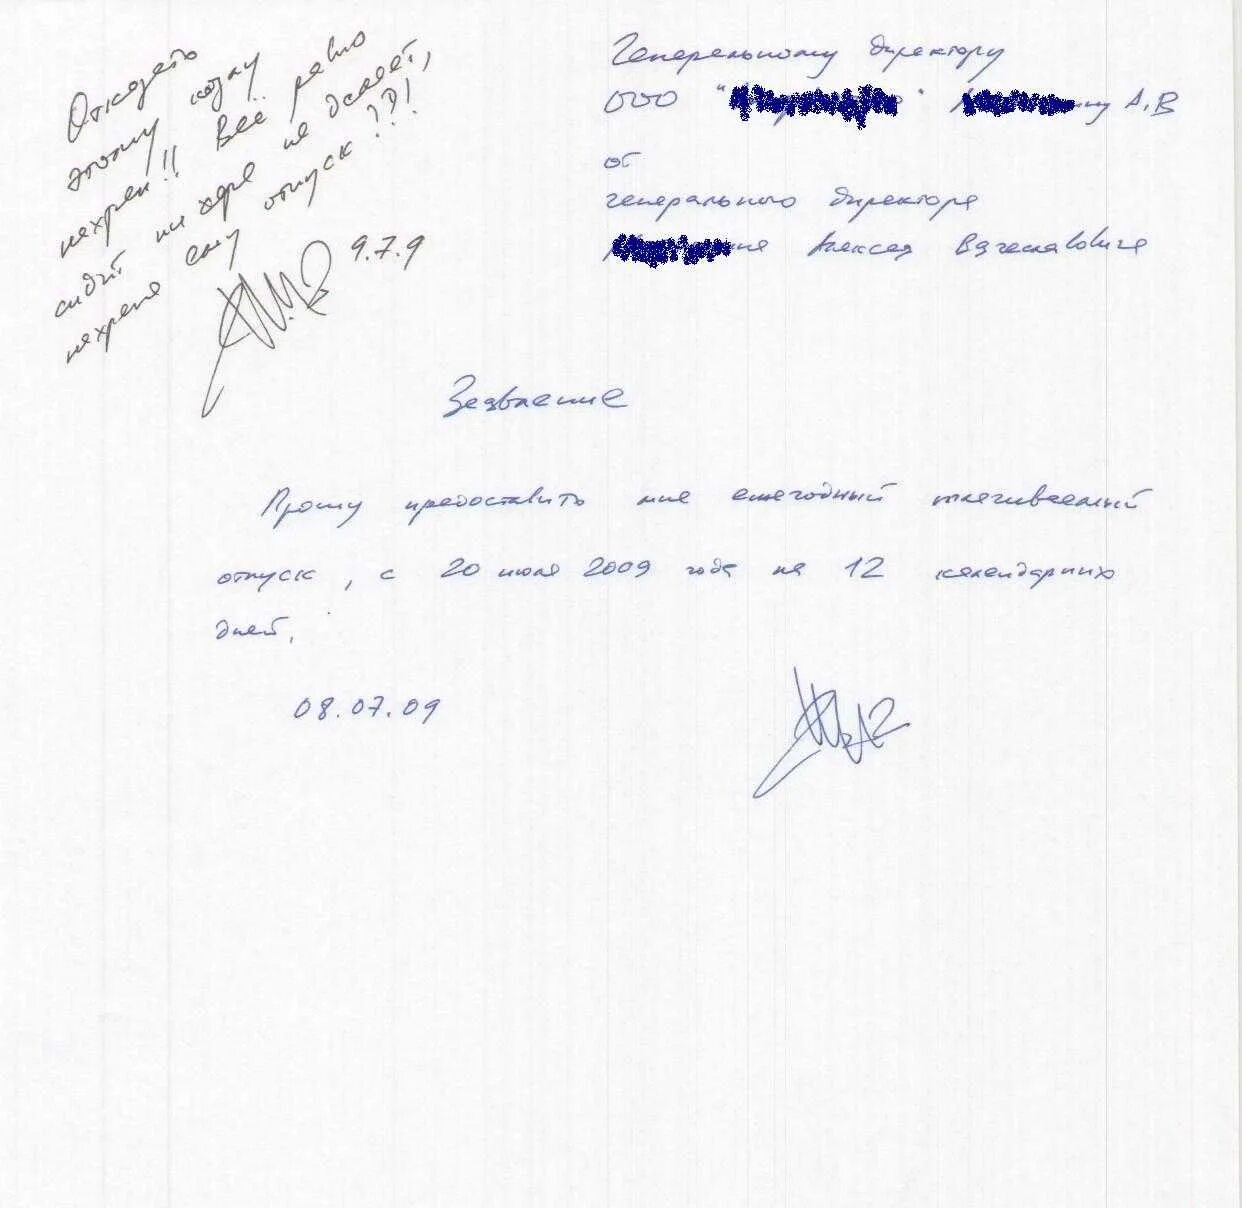 Отказать
этому козлу
нахрен!! Всё равно
сидит ни хера не делает,
нахрена ему отпуск???!
9.7.9
Генеральному директору
ООО " " А.В
от
генерального директора
Алексея Вячеславовича
Заявление
Прошу предоставить мне ежегодный оплачиваемый
отпуск, с 20 июля 2009 года на 12 календарных
дней.
08.07.09